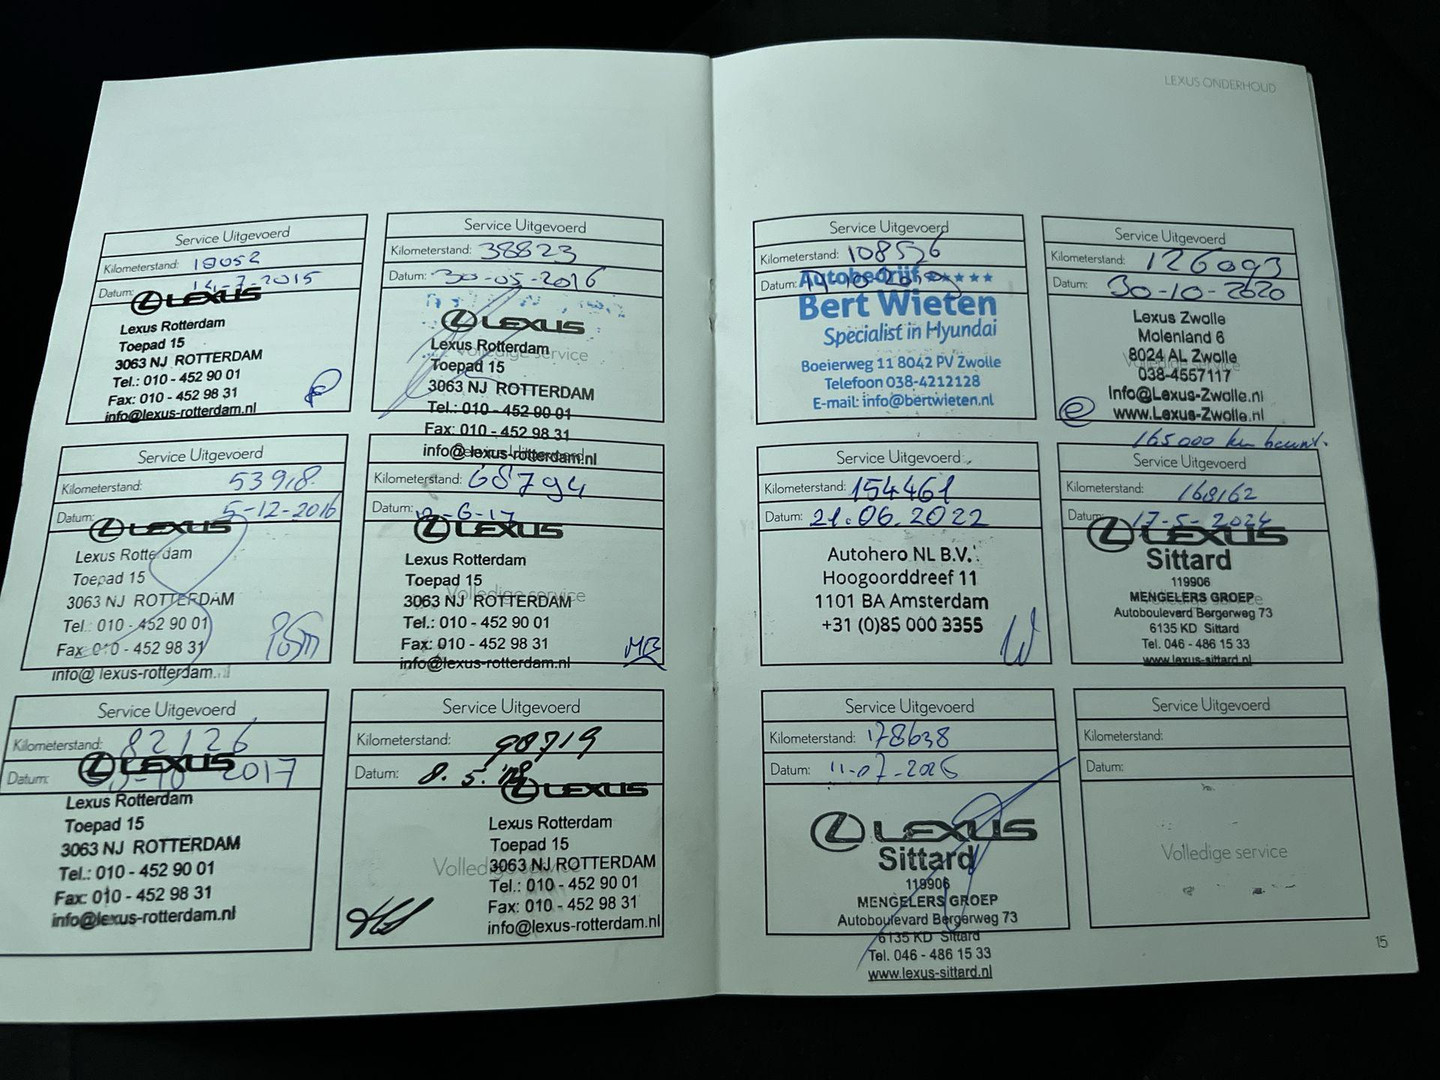 LEXUS ONDERHOUD
Service Uitgevoerd
Kilometerstand: 19052
Datum: 14-7-2015
LEXUS
Lexus Rotterdam
Toepad 15
3063 NJ ROTTERDAM
Tel.: 010 - 452 90 01
Fax: 010 - 452 98 31
info@lexus-rotterdam.nl
Service Uitgevoerd
Kilometerstand: 38823
Datum: 30-05-2016
LEXUS
Volledige service
Lexus Rotterdam
Toepad 15
3063 NJ ROTTERDAM
Tel.: 010 - 452 90 01
Fax: 010 - 452 98 31
info@lexus-rotterdam.nl
Service Uitgevoerd
Kilometerstand: 53918
Datum: 5-12-2016
LEXUS
Lexus Rotterdam
Toepad 15
3063 NJ ROTTERDAM
Tel.: 010 - 452 90 01
Fax: 010 - 452 98 31
info@lexus-rotterdam.nl
Kilometerstand: 68794
Datum: -6-17
LEXUS
Lexus Rotterdam
Toepad 15
Volledige service
3063 NJ ROTTERDAM
Tel.: 010 - 452 90 01
Fax: 010 - 452 98 31
MB
info@lexus-rotterdam.nl
Service Uitgevoerd
Kilometerstand: 82126
Datum: -10-2017
LEXUS
Lexus Rotterdam
Toepad 15
3063 NJ ROTTERDAM
Tel.: 010 - 452 90 01
Fax: 010 - 452 98 31
info@lexus-rotterdam.nl
Service Uitgevoerd
Kilometerstand: 98719
Datum: 8.5.'18
LEXUS
Lexus Rotterdam
Toepad 15
Volledige service
3063 NJ ROTTERDAM
Tel.: 010 - 452 90 01
Fax: 010 - 452 98 31
info@lexus-rotterdam.nl
Service Uitgevoerd
Kilometerstand: 108536
Datum:
Autobedrijf ★★★★★
Bert Wieten
Specialist in Hyundai
Boeierweg 11 8042 PV Zwolle
Telefoon 038-4212128
E-mail: info@bertwieten.nl
Service Uitgevoerd
Kilometerstand: 126093
Datum: 30-10-2020
Lexus Zwolle
Molenland 6
8024 AL Zwolle
038-4557117
Info@Lexus-Zwolle.nl
www.Lexus-Zwolle.nl
165000 km beurt.
Service Uitgevoerd
Kilometerstand: 154461
Datum: 21.06.2022
Autohero NL B.V.
Hoogoorddreef 11
1101 BA Amsterdam
+31 (0)85 000 3355
Service Uitgevoerd
Kilometerstand: 168162
Datum: 17-5-2024
LEXUS
Sittard
119906
MENGELERS GROEP
Autoboulevard Bergerweg 73
6135 KD Sittard
Tel. 046 - 486 15 33
www.lexus-sittard.nl
Service Uitgevoerd
Kilometerstand: 178638
Datum: 11-07-2025
LEXUS
Sittard
119906
MENGELERS GROEP
Autoboulevard Bergerweg 73
6135 KD Sittard
Tel. 046 - 486 15 33
www.lexus-sittard.nl
Service Uitgevoerd
Kilometerstand:
Datum:
Volledige service
15